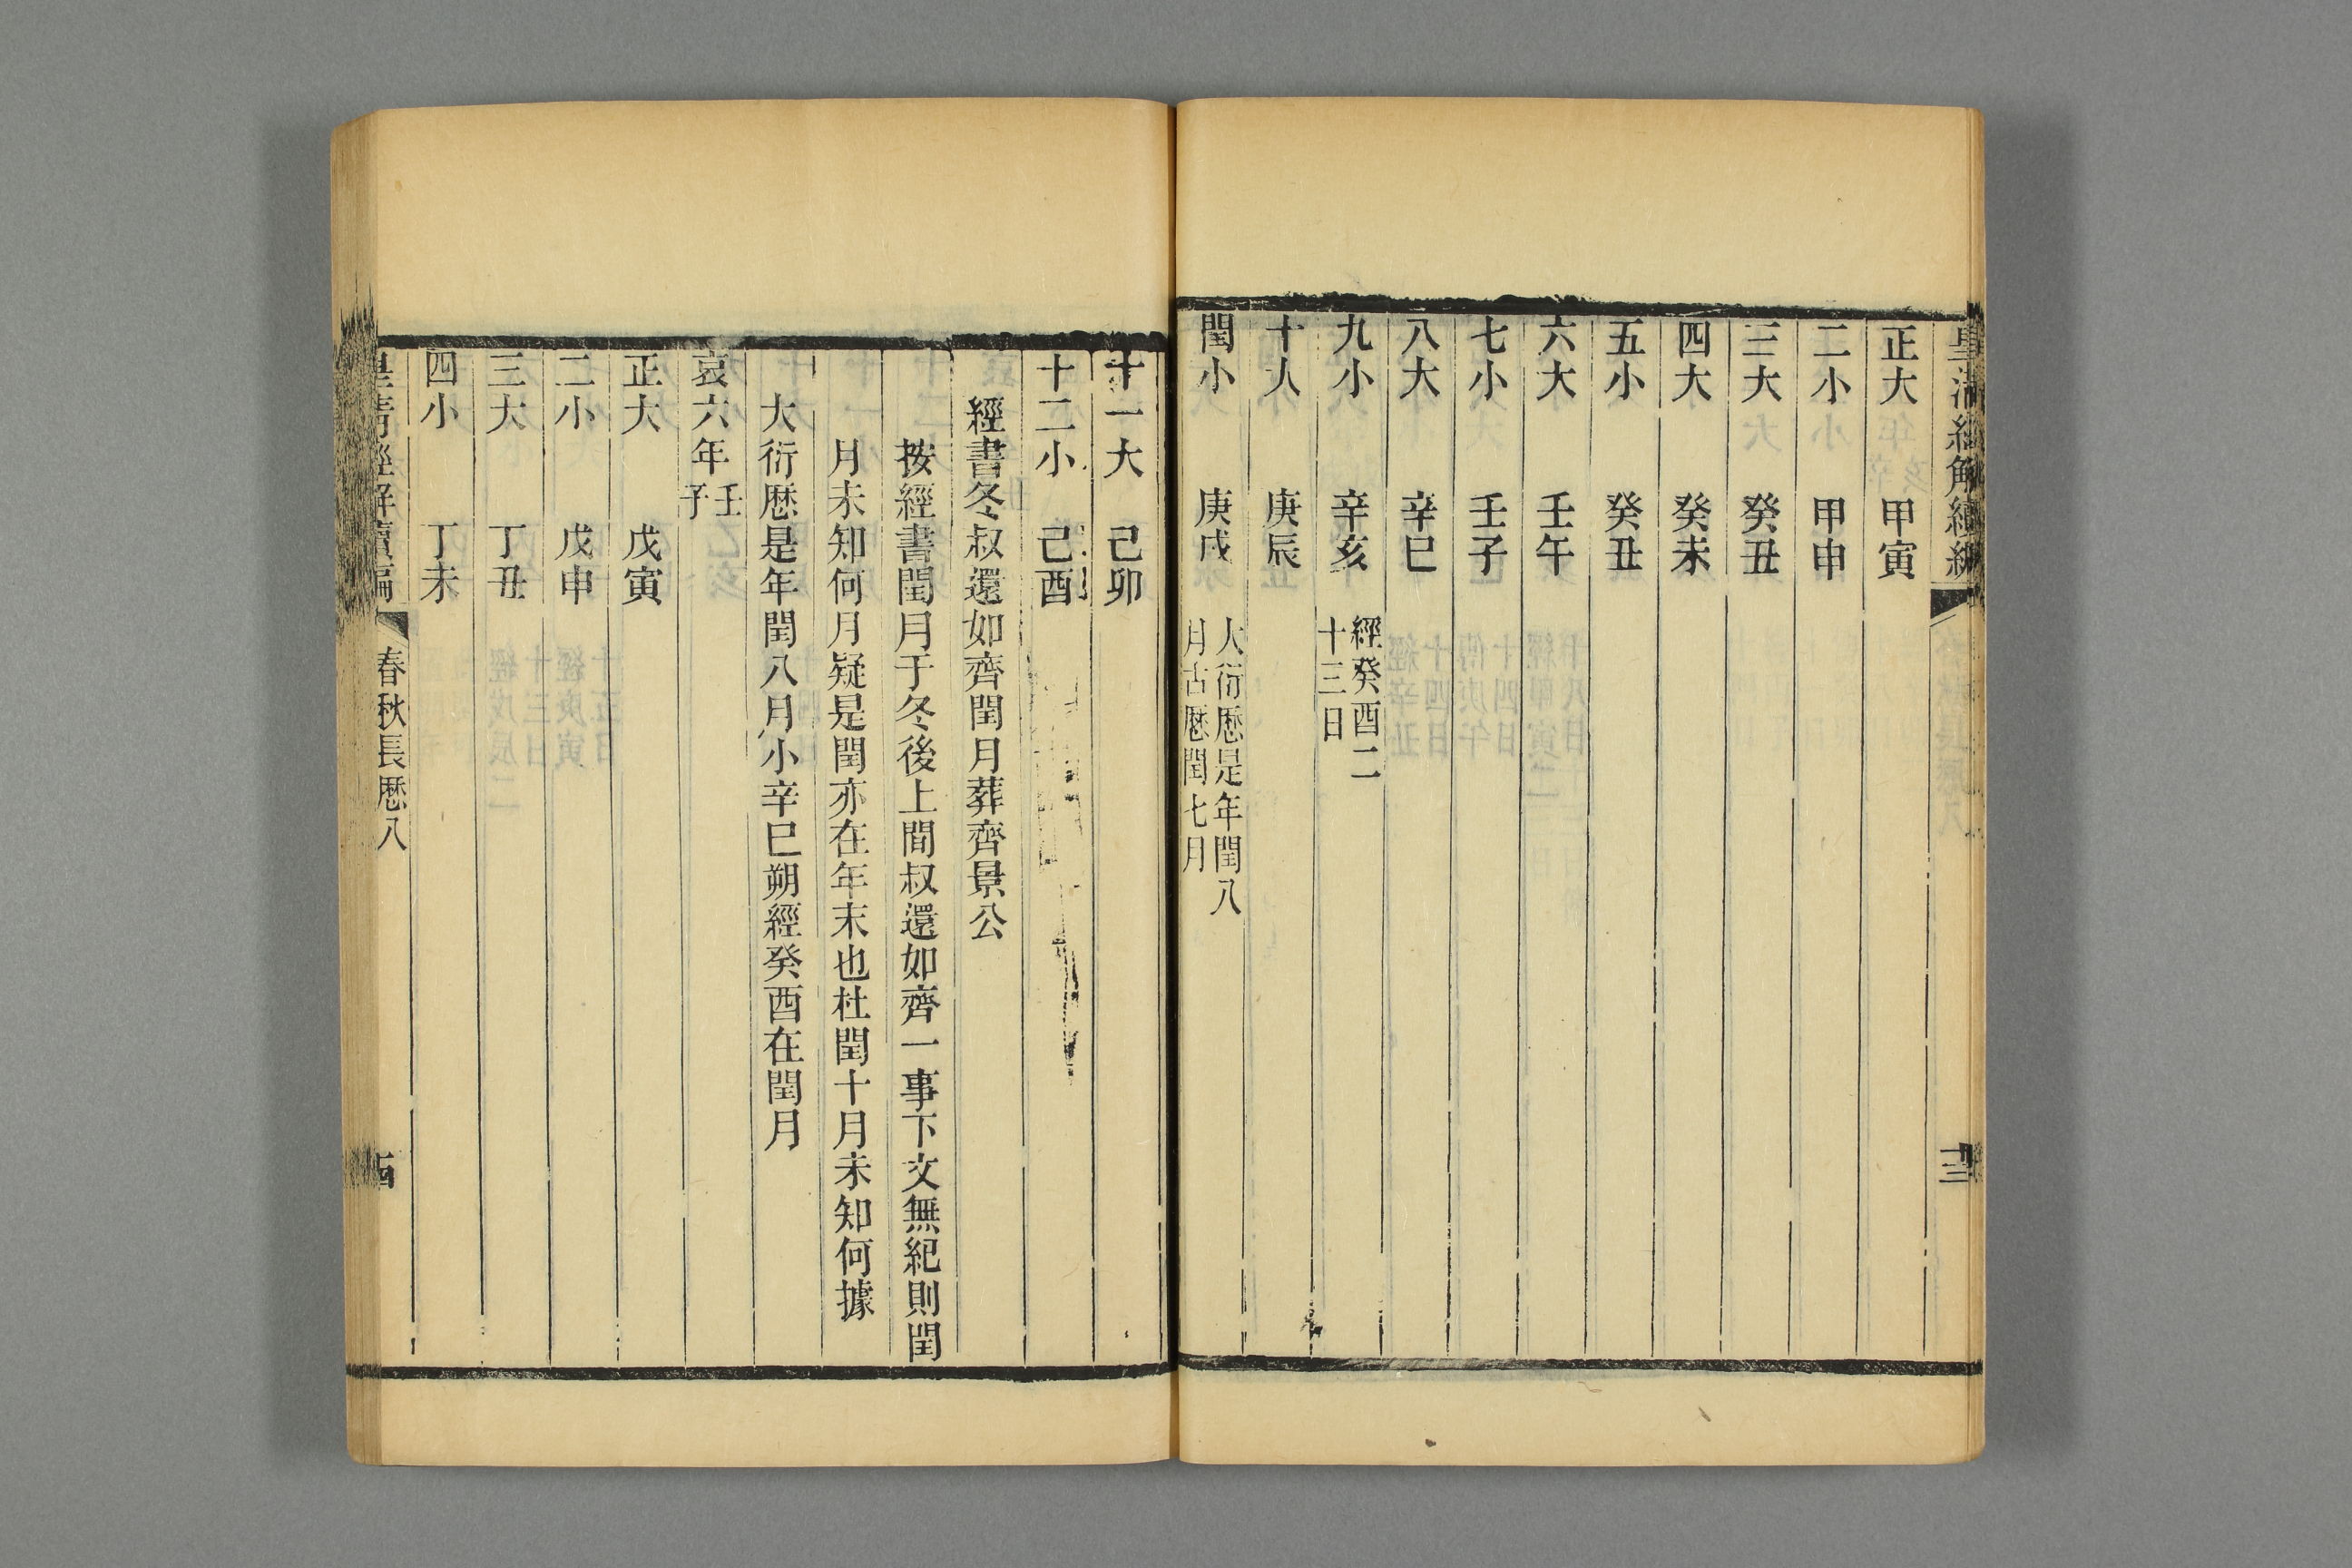 皇清經解續編
正大　甲寅
二小　甲申
三大　癸丑
四大　癸未
五小　癸丑
六大　壬午
七小　壬子
八大　辛巳
九小　辛亥　經癸酉二
十三日
十大　庚辰
閏小　庚戌　大衍厯是年閏八
月古厯閏七月
十一大　己卯
十二小　己酉
經書冬叔還如齊閏月葬齊景公
按經書閏月于冬後上間叔還如齊一事下文無紀則閏
月未知何月疑是閏亦在年末也杜閏十月未知何據
大衍厯是年閏八月小辛巳朔經癸酉在閏月
哀六年壬
子
正大　戊寅
二小　戊申
三大　丁丑
四小　丁未
皇清經解續編　春秋長厯八